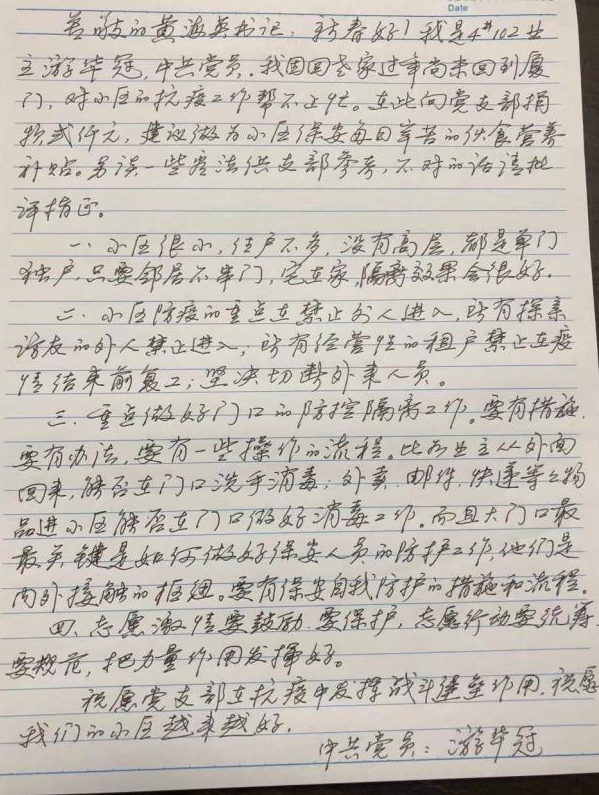 Date
尊敬的黄海英书记：新春好！我是4#102业
主游毕冠，中共党员。我因回老家过年尚未回到厦
门，对小区的抗疫工作帮不上忙。在此向党支部捐
款贰仟元，建议做为小区保安每日辛苦的伙食营养
补贴。另谈一些看法供支部参考，不对的话请批
评指正。
一、小区很小，住户不多，没有高层，都是单门
独户，只要邻居不串门，宅在家，隔离效果会很好。
二、小区防疫的重点在禁止外人进入，所有探亲
访友的外人禁止进入；所有经营性的租户禁止在疫
情结束前复工；坚决切断外来人员。
三、重点做好门口的防控隔离工作。要有措施，
要有办法，要有一些操作的流程。比如业主从外面
回来，能否在门口洗手消毒；外卖、邮件、快递等之物
品进小区能否在门口做好消毒工作。而且大门口最
最关键是如何做好保安人员的防护工作，他们是
内外接触的枢纽。要有保安自我防护的措施和流程。
四、志愿激情要鼓励，要保护，志愿行动要统筹，
要规范，把力量作用发挥好。
祝愿党支部在抗疫中发挥战斗堡垒作用，祝愿
我们的小区越来越好。
中共党员：游毕冠